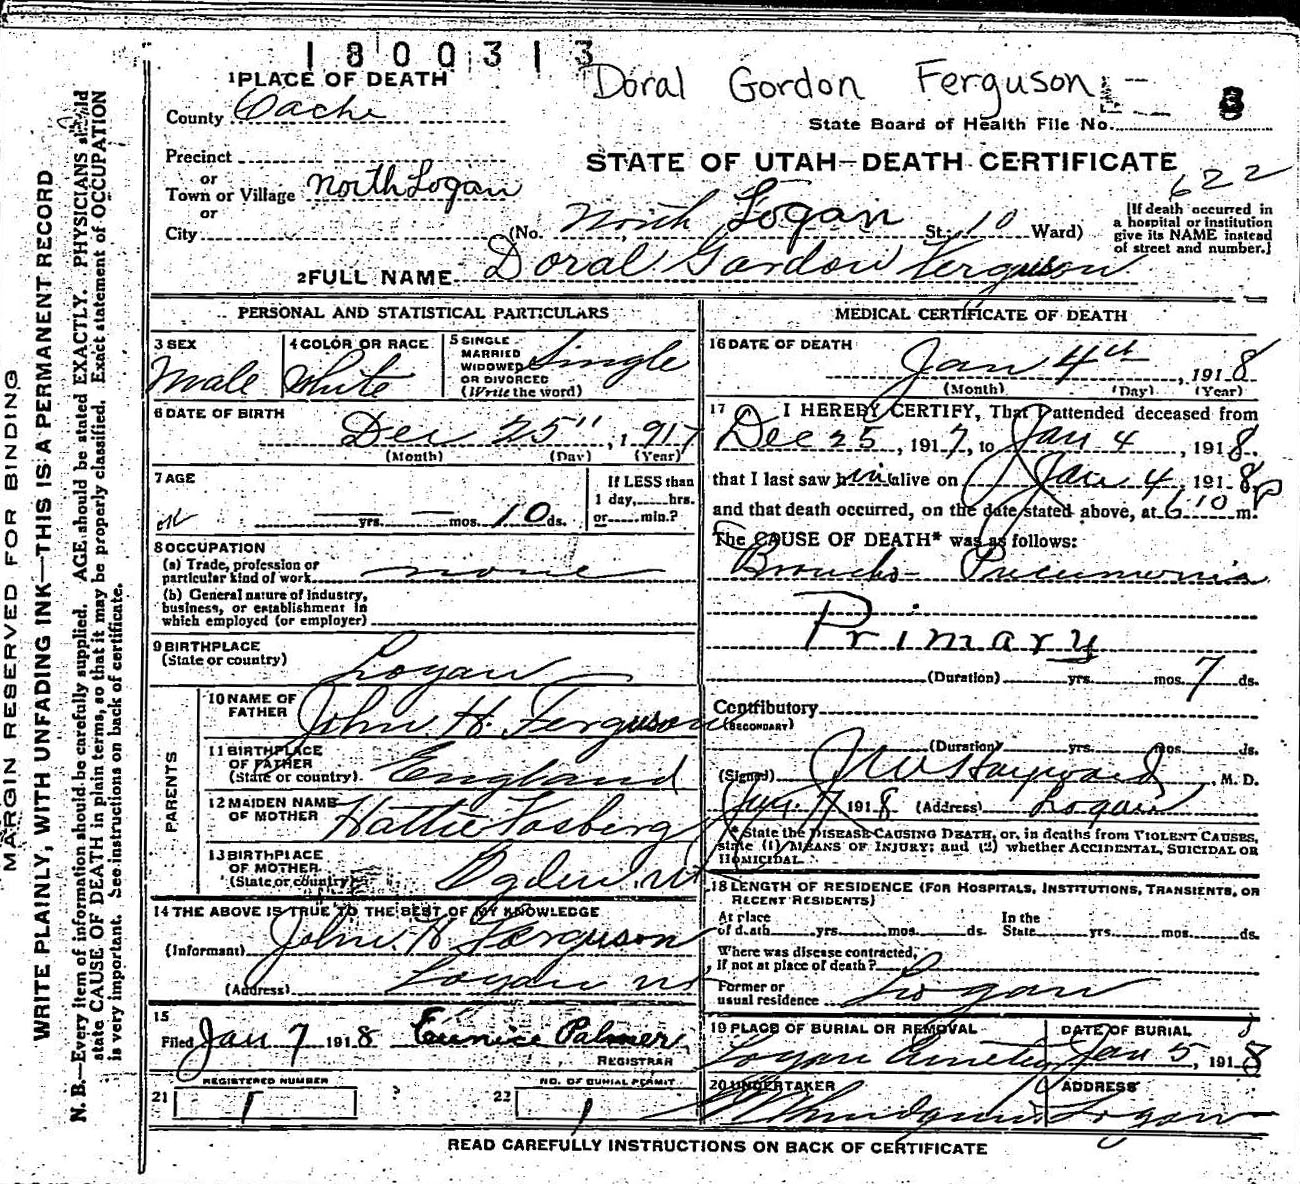 1800313
Doral Gordon Ferguson
8
1 PLACE OF DEATH
County Cache
State Board of Health File No.
Precinct
or
Town or Village North Logan
or
City
STATE OF UTAH—DEATH CERTIFICATE
622
(No. North Logan St.; 10 Ward)
[If death occurred in
a hospital or institution
give its NAME instead
of street and number.]
2 FULL NAME Doral Gardon Ferguson
PERSONAL AND STATISTICAL PARTICULARS
3 SEX
Male
4 COLOR OR RACE
White
5 SINGLE
MARRIED
WIDOWED
OR DIVORCED
(Write the word)
Single
6 DATE OF BIRTH
Dec 25", 1917
(Month) (Day) (Year)
7 AGE
— yrs. — mos. 10 ds.
If LESS than
1 day, hrs.
or min.?
8 OCCUPATION
(a) Trade, profession or
particular kind of work none
(b) General nature of industry,
business, or establishment in
which employed (or employer)
9 BIRTHPLACE
(State or country)
Logan
PARENTS
10 NAME OF
FATHER
John H. Ferguson
11 BIRTHPLACE
OF FATHER
(State or country)
England
12 MAIDEN NAME
OF MOTHER
Hattie Fosberg
13 BIRTHPLACE
OF MOTHER
(State or country)
Ogden Ut
14 THE ABOVE IS TRUE TO THE BEST OF MY KNOWLEDGE
(Informant) John H Ferguson
(Address) Logan Ut
15
Filed Jan 7 1918 Eunice Palmer
REGISTRAR
REGISTERED NUMBER
21 1
NO. OF BURIAL PERMIT
22 1
MEDICAL CERTIFICATE OF DEATH
16 DATE OF DEATH
Jan 4th, 1918
(Month) (Day) (Year)
17 I HEREBY CERTIFY, That I attended deceased from
Dec 25, 1917, to Jan 4, 1918.
that I last saw him alive on Jan 4, 1918,
and that death occurred, on the date stated above, at 6:10 P m.
The CAUSE OF DEATH* was as follows:
Broncho-Pneumonia
Primary
(Duration) yrs. mos. 7 ds.
Contributory
(SECONDARY)
(Duration) yrs. mos. ds.
(Signed) J W Hayward, M. D.
Jan 7 1918 (Address) Logan
* State the DISEASE CAUSING DEATH, or, in deaths from VIOLENT CAUSES,
state (1) MEANS OF INJURY; and (2) whether ACCIDENTAL, SUICIDAL OR
HOMICIDAL.
18 LENGTH OF RESIDENCE (FOR HOSPITALS, INSTITUTIONS, TRANSIENTS, OR
RECENT RESIDENTS)
At place
of death yrs. mos. ds.
In the
State yrs. mos. ds.
Where was disease contracted,
if not at place of death?
Former or
usual residence Logan
19 PLACE OF BURIAL OR REMOVAL
Logan
DATE OF BURIAL
Jan 5, 1918
20 UNDERTAKER
ADDRESS
Logan
READ CAREFULLY INSTRUCTIONS ON BACK OF CERTIFICATE
MARGIN RESERVED FOR BINDING
WRITE PLAINLY, WITH UNFADING INK—THIS IS A PERMANENT RECORD
N. B.—Every item of information should be carefully supplied. AGE should be stated EXACTLY. PHYSICIANS should
state CAUSE OF DEATH in plain terms, so that it may be properly classified. Exact statement of OCCUPATION
is very important. See instructions on back of certificate.